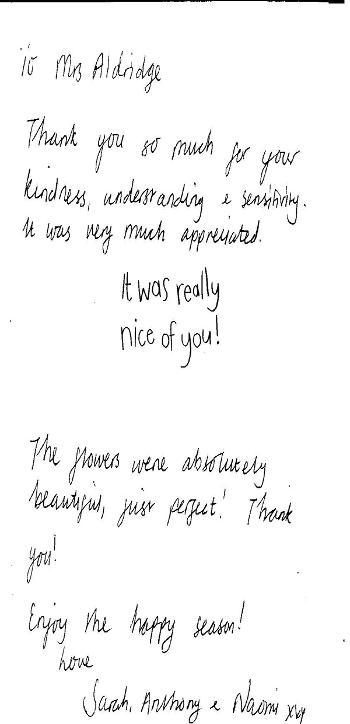 To Mrs Aldridge
Thank you so much for your
kindness, understanding & sensitivity.
It was very much appreciated.
It was really
nice of you!
The flowers were absolutely
beautiful, just perfect! Thank
you!
Enjoy the happy season!
Love
Sarah, Anthony & Naomi xxx